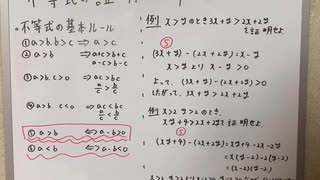 不等式の基本ルール
① a>b, b>c ⇒ a>c
② a>b ⇒ a+c>b+c
a-c>b-c
③ a>b, c>0 ⇒ ac>bc
a/c > b/c
④ a>b, c<0 ⇒ ac<bc
a/c < b/c
⑤ a>b ⇔ a-b>0
⑥ a<b ⇔ a-b<0
例 x>yのとき 3x+y>2x+2y
を証明せよ
⑤
(3x+y)-(2x+2y)=x-y
x>y より x-y>0
よって、(3x+y)-(2x+2y)>0
したがって、3x+y>2x+2y
例 x>2 y>2 のとき、
xy+4>2x+2y を証明せよ
⑤
(xy+4)-(2x+2y)=xy+4-2x-2y
=x(y-2)-2(y-2)
=(x-2)(y-2)